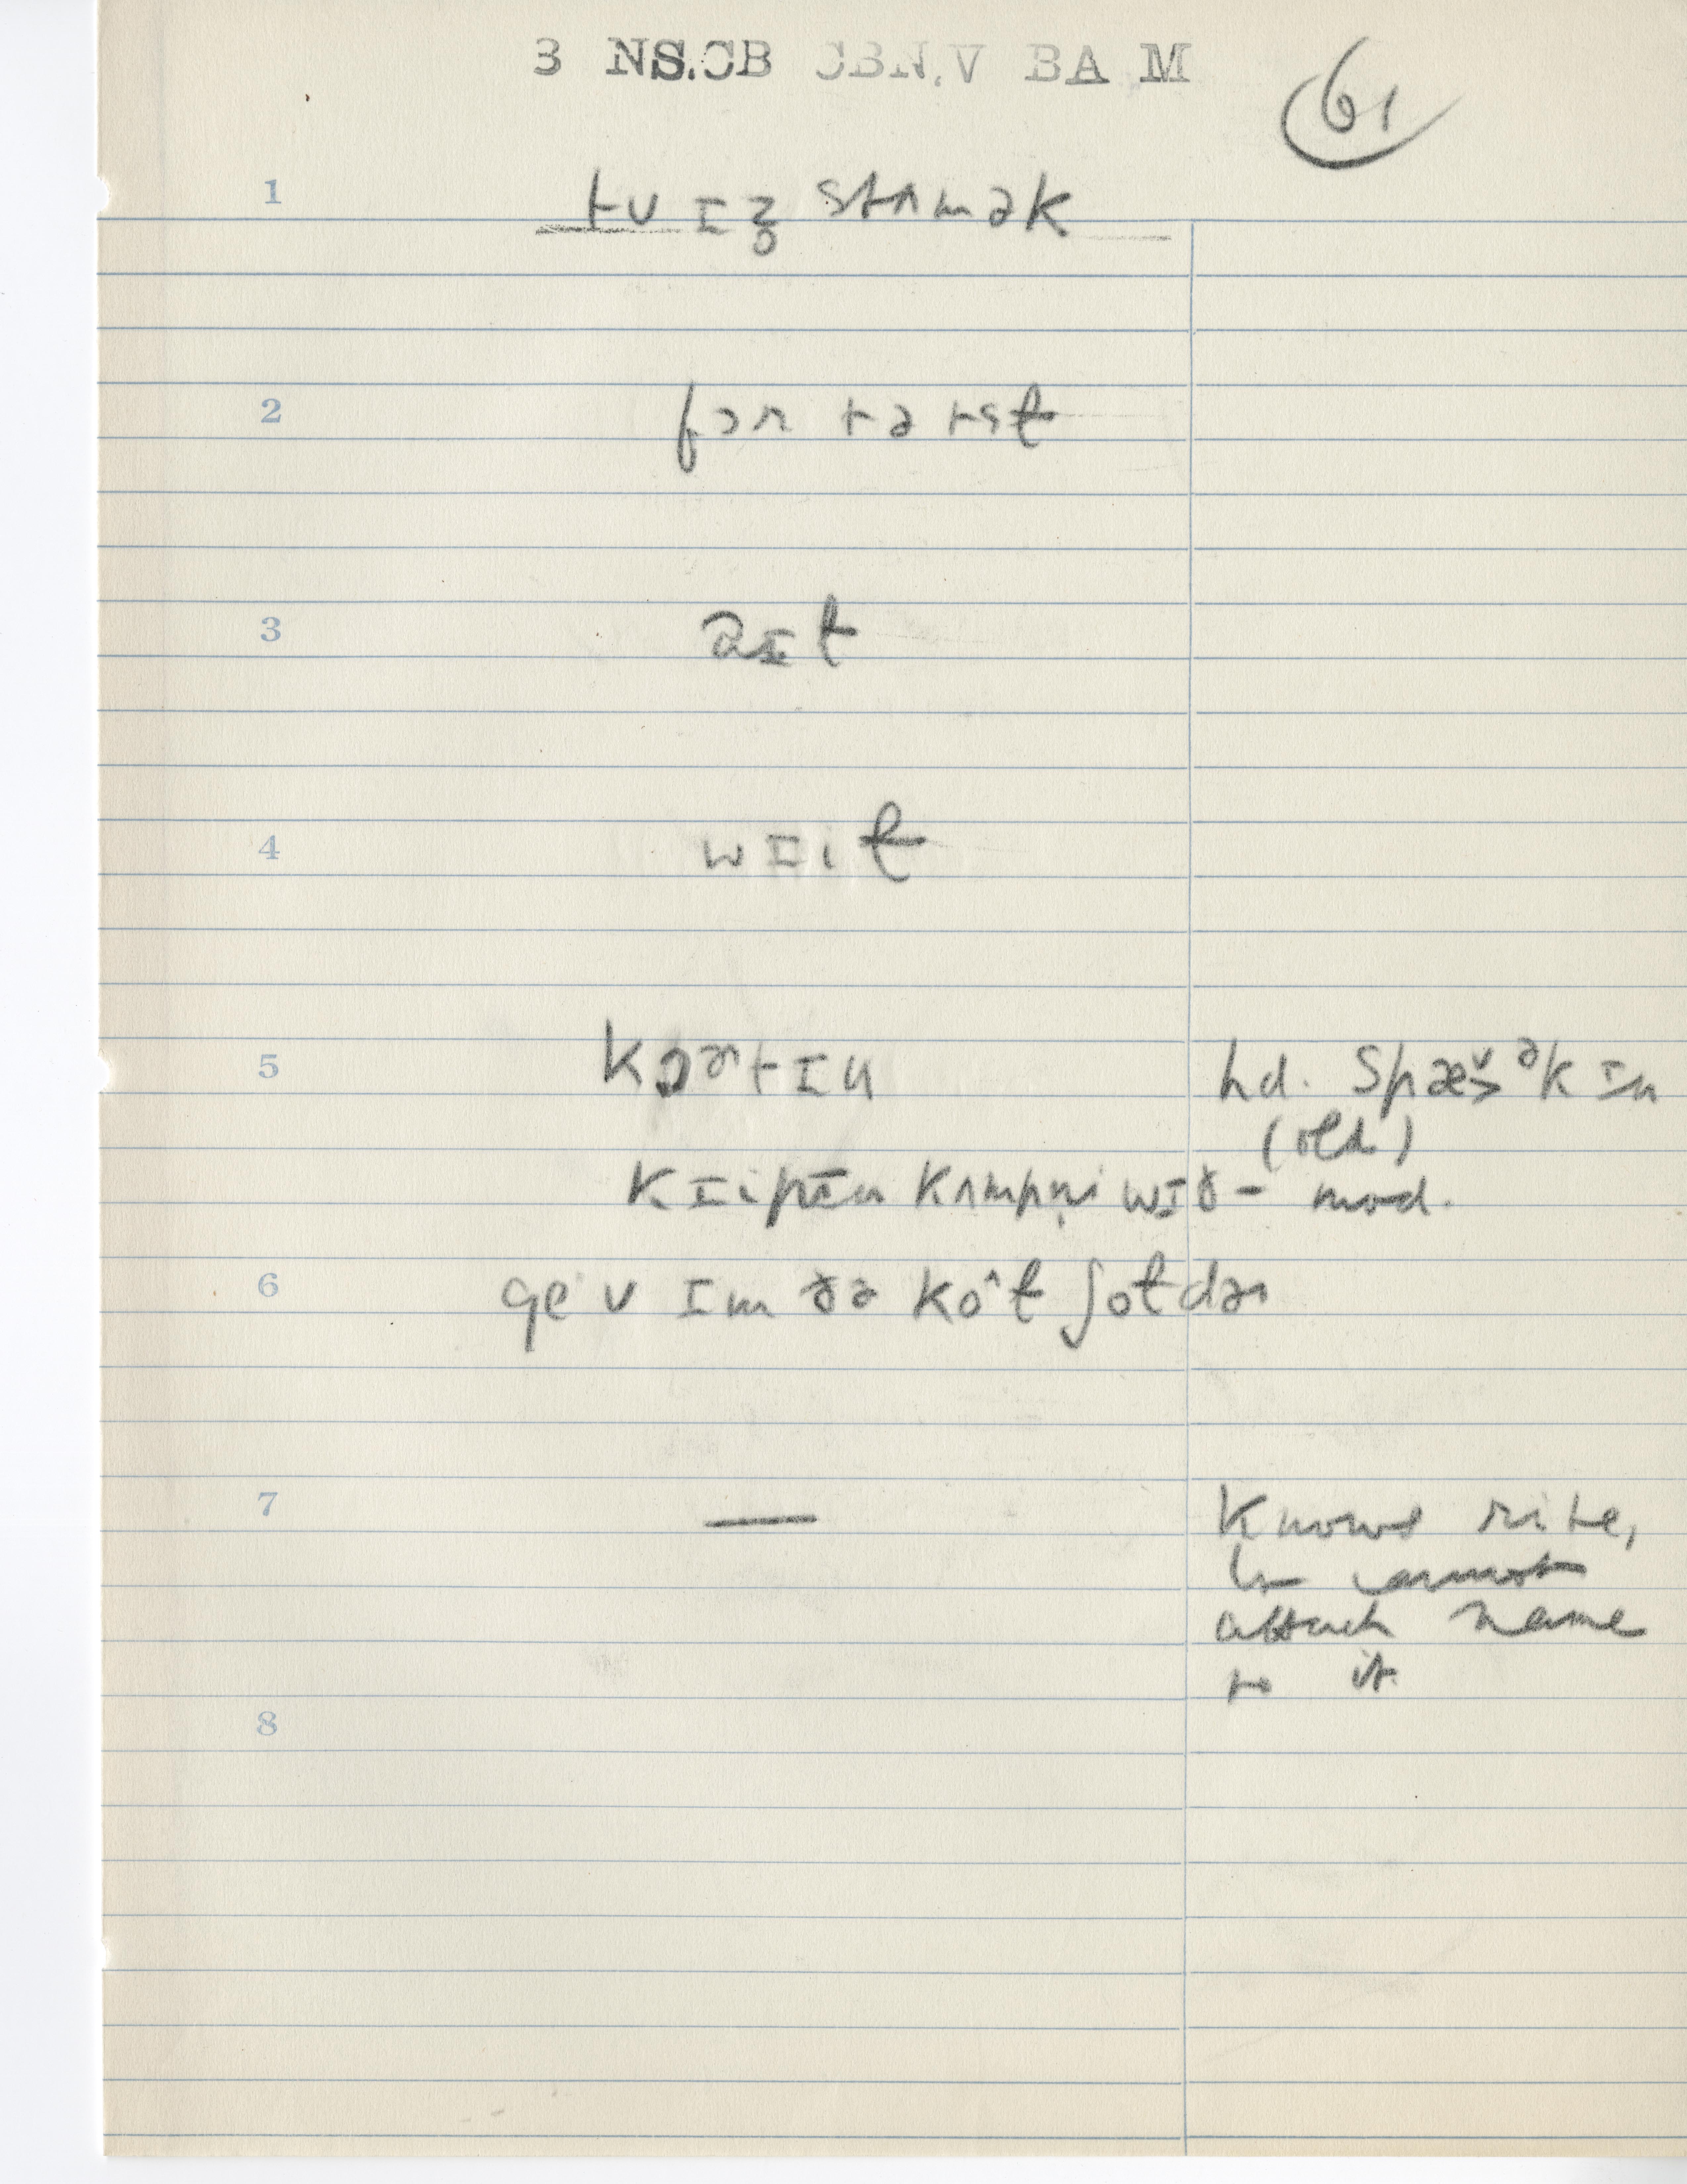 3 NS.CB CBN.V BA M
61
1 tu ɪz̥ stʌmək
2 fɔn tə nst
3 aɪt
4 wɪit
5 kɔɚtɪn hd. spæˇ>ᵊkɪn
(old)
kɪipɪn kʌmpn̩i wɪð - mod.
6 ge v ɪm ðə ko^t ʃotdɚ
7 — Knows rite,
cannot
attach name
to it
8